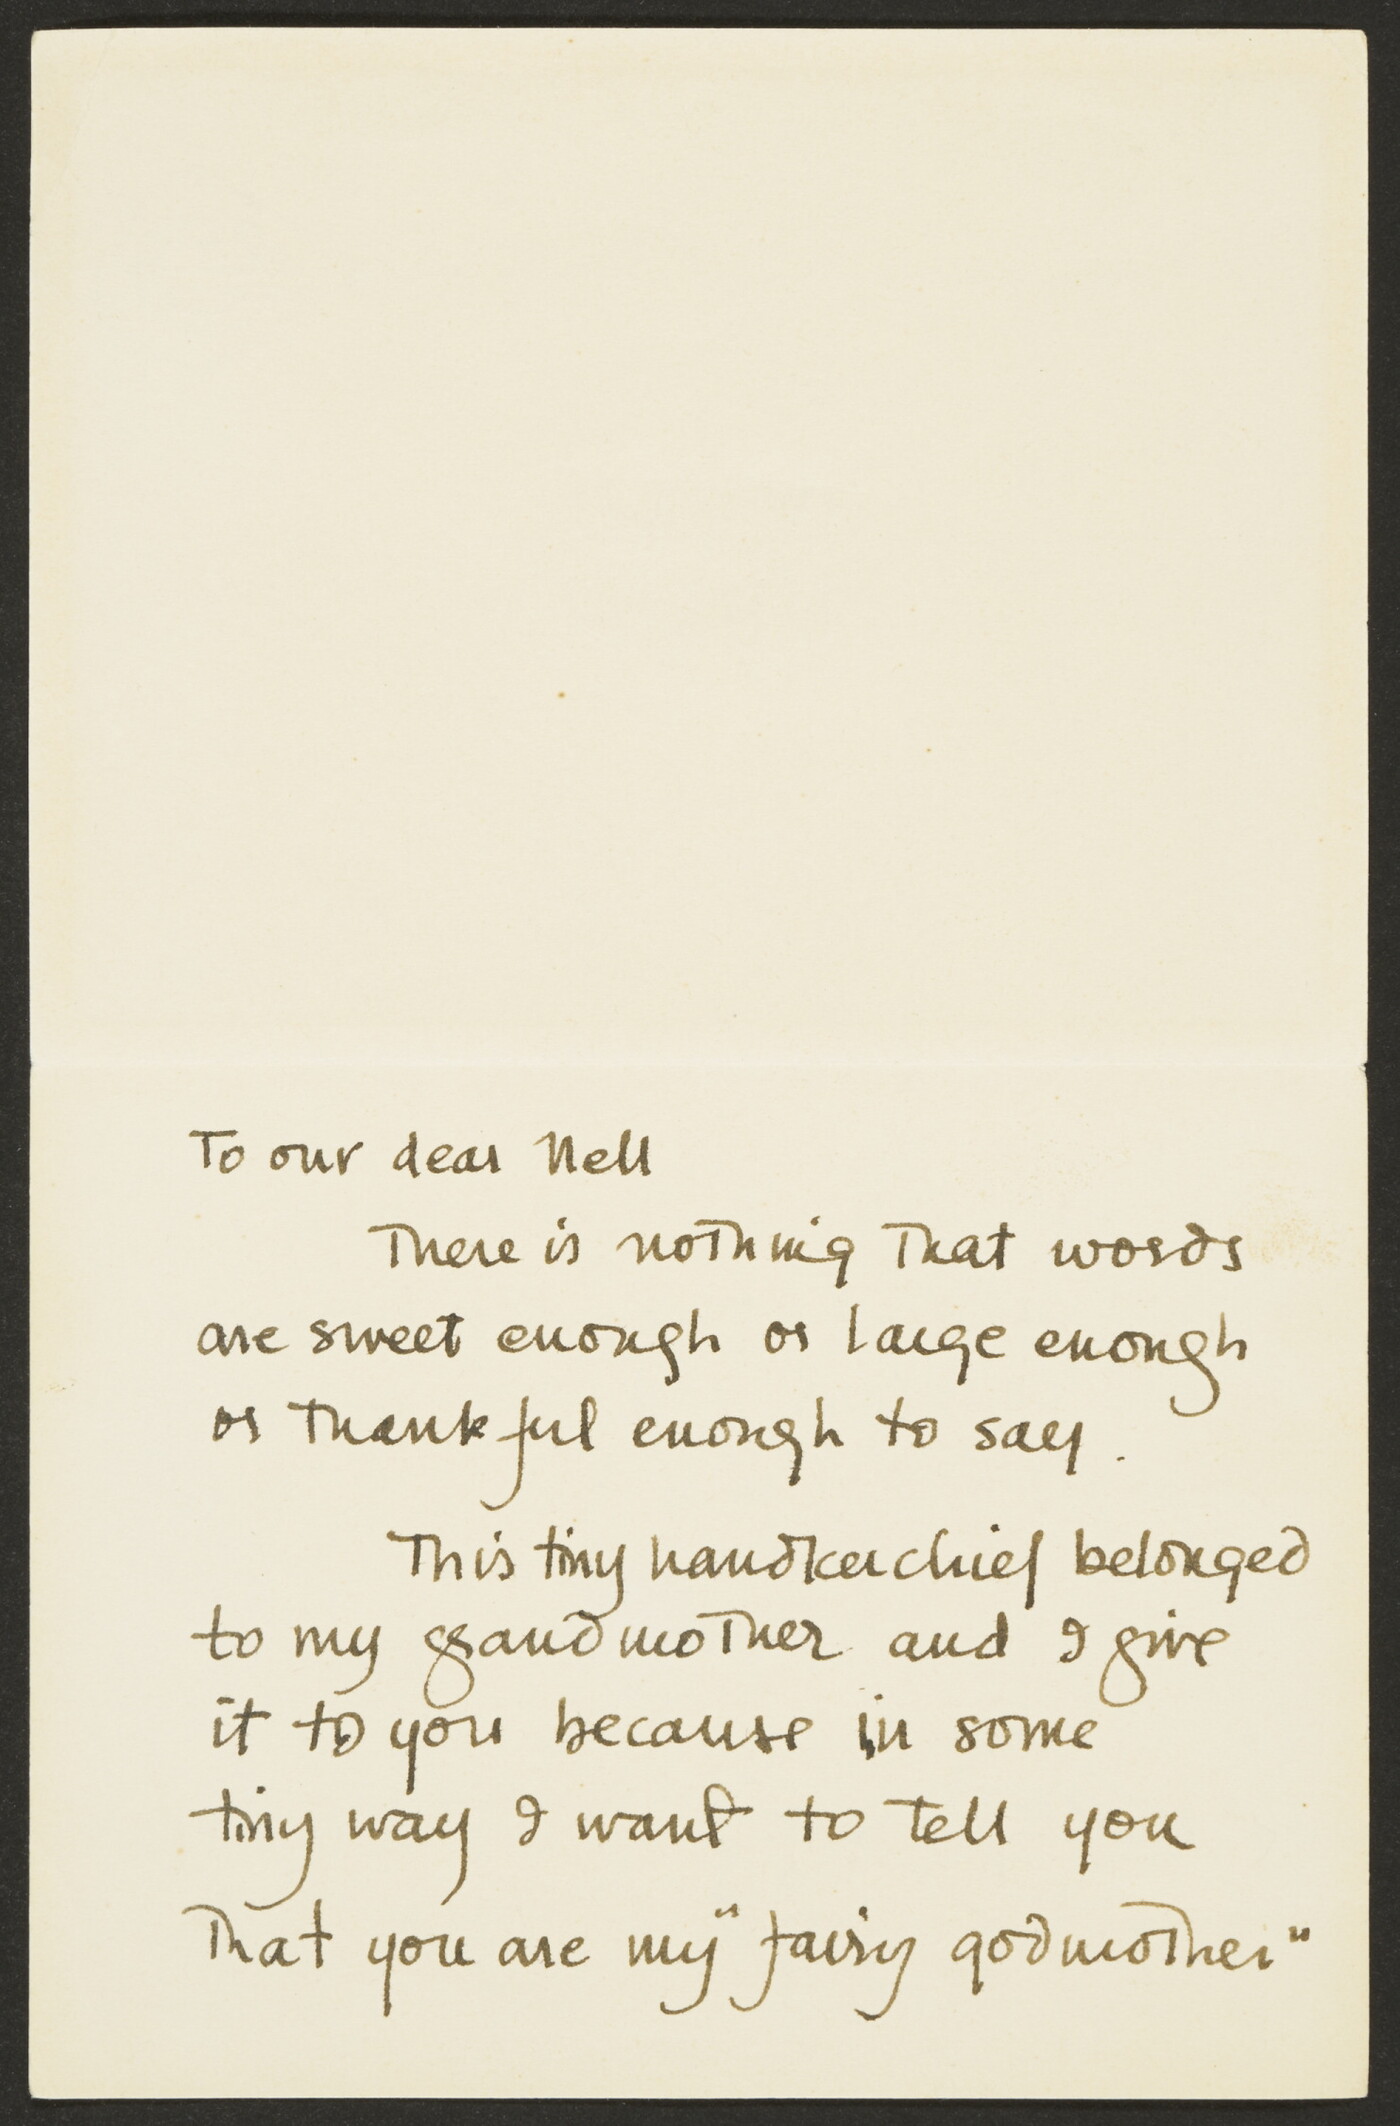 To our dear Nell
There is nothing that words
are sweet enough or large enough
or thankful enough to say.
This tiny handkerchief belonged
to my grandmother and I give
it to you because in some
tiny way I want to tell you
that you are my "fairy godmother"